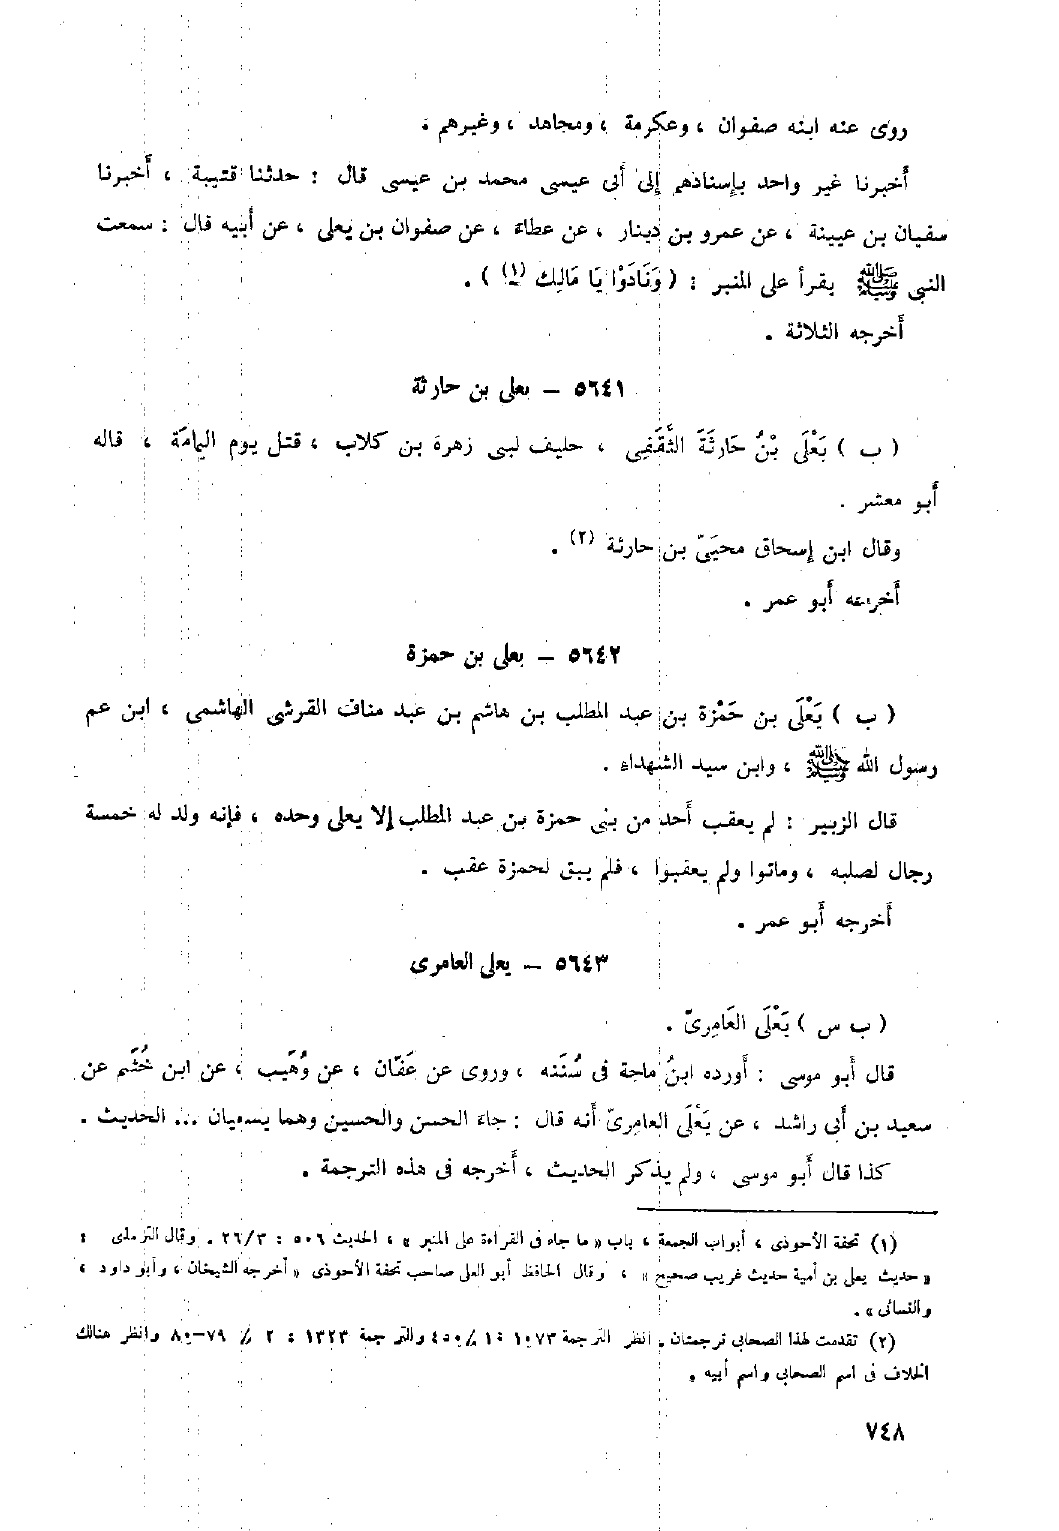 روى عنه ابنه صفوان ، وعكرمة ، ومجاهد ، وغيرهم .
أخبرنا غير واحد بإسنادهم إلى أبى عيسى محمد بن عيسى قال : حدثنا قتيبة ، أخبرنا
سفيان بن عيينة ، عن عمرو بن دينار ، عن عطاء ، عن صفوان بن يعلى ، عن أبيه قال : سمعت
النبى ﷺ يقرأ على المنبر : ( وَنَادَوْا يَا مَالِك (١) ) .
أخرجه الثلاثة .
٥٦٤١ – يعلى بن حارثة
( ب ) يَعْلَى بْنُ حَارثَةَ الثَّقَفِى ، حليف لبنى زهرة بن كلاب ، قتل يوم اليمامَة ، قاله
أبو معشر .
وقال ابن إسحاق محيَىّ بن حارثة (٢) .
أخرجه أبو عمر .
٥٦٤٢ – يعلى بن حمزة
( ب ) يَعْلَى بن حَمْزة بن عبد المطلب بن هاشم بن عبد مناف القرشى الهاشمى ، ابن عم
رسول الله ﷺ ، وابن سيد الشهداء .
قال الزبير : لم يعقب أحد من بنى حمزة بن عبد المطلب إلا يعلى وحده ، فإنه ولد له خمسة
رجال لصلبه ، وماتوا ولم يعقبوا ، فلم يبق لحمزة عقب .
أخرجه أبو عمر .
٥٦٤٣ – يعلى العامرى
( ب س ) يَعْلَى العَامِرىّ .
قال أبو موسى : أورده ابنُ ماجة فى سُنَنه ، وروى عن عَفّان ، عن وُهَيب ، عن ابن خُثَم عن
سعيد بن أبى راشد ، عن يَعْلَى العامرىّ أنه قال : جاء الحسن والحسين وهما يسعيان ... الحديث .
كذا قال أبو موسى ، ولم يذكر الحديث ، أخرجه فى هذه الترجمة .
(١) تحفة الأحوذى ، أبواب الجمعة ، باب « ما جاء فى القراءة على المنبر » ، الحديث ٥٠٦ : ٢٦/٣ . وقال الترمذى :
« حديث يعلى بن أمية حديث غريب صحيح » ، وقال الحافظ أبو العلى صاحب تحفة الأحوذى « أخرجه الشيخان ، وأبو داود ،
والنسائى » .
(٢) تقدمت لهذا الصحابى ترجمتان . انظر الترجمة ١٠٧٣ : ١ / ٤٥٠ والترجمة ١٣٢٣ : ٢ / ٧٩-٨٠ وانظر هنالك
الخلاف فى اسم الصحابى واسم أبيه .
٧٤٨